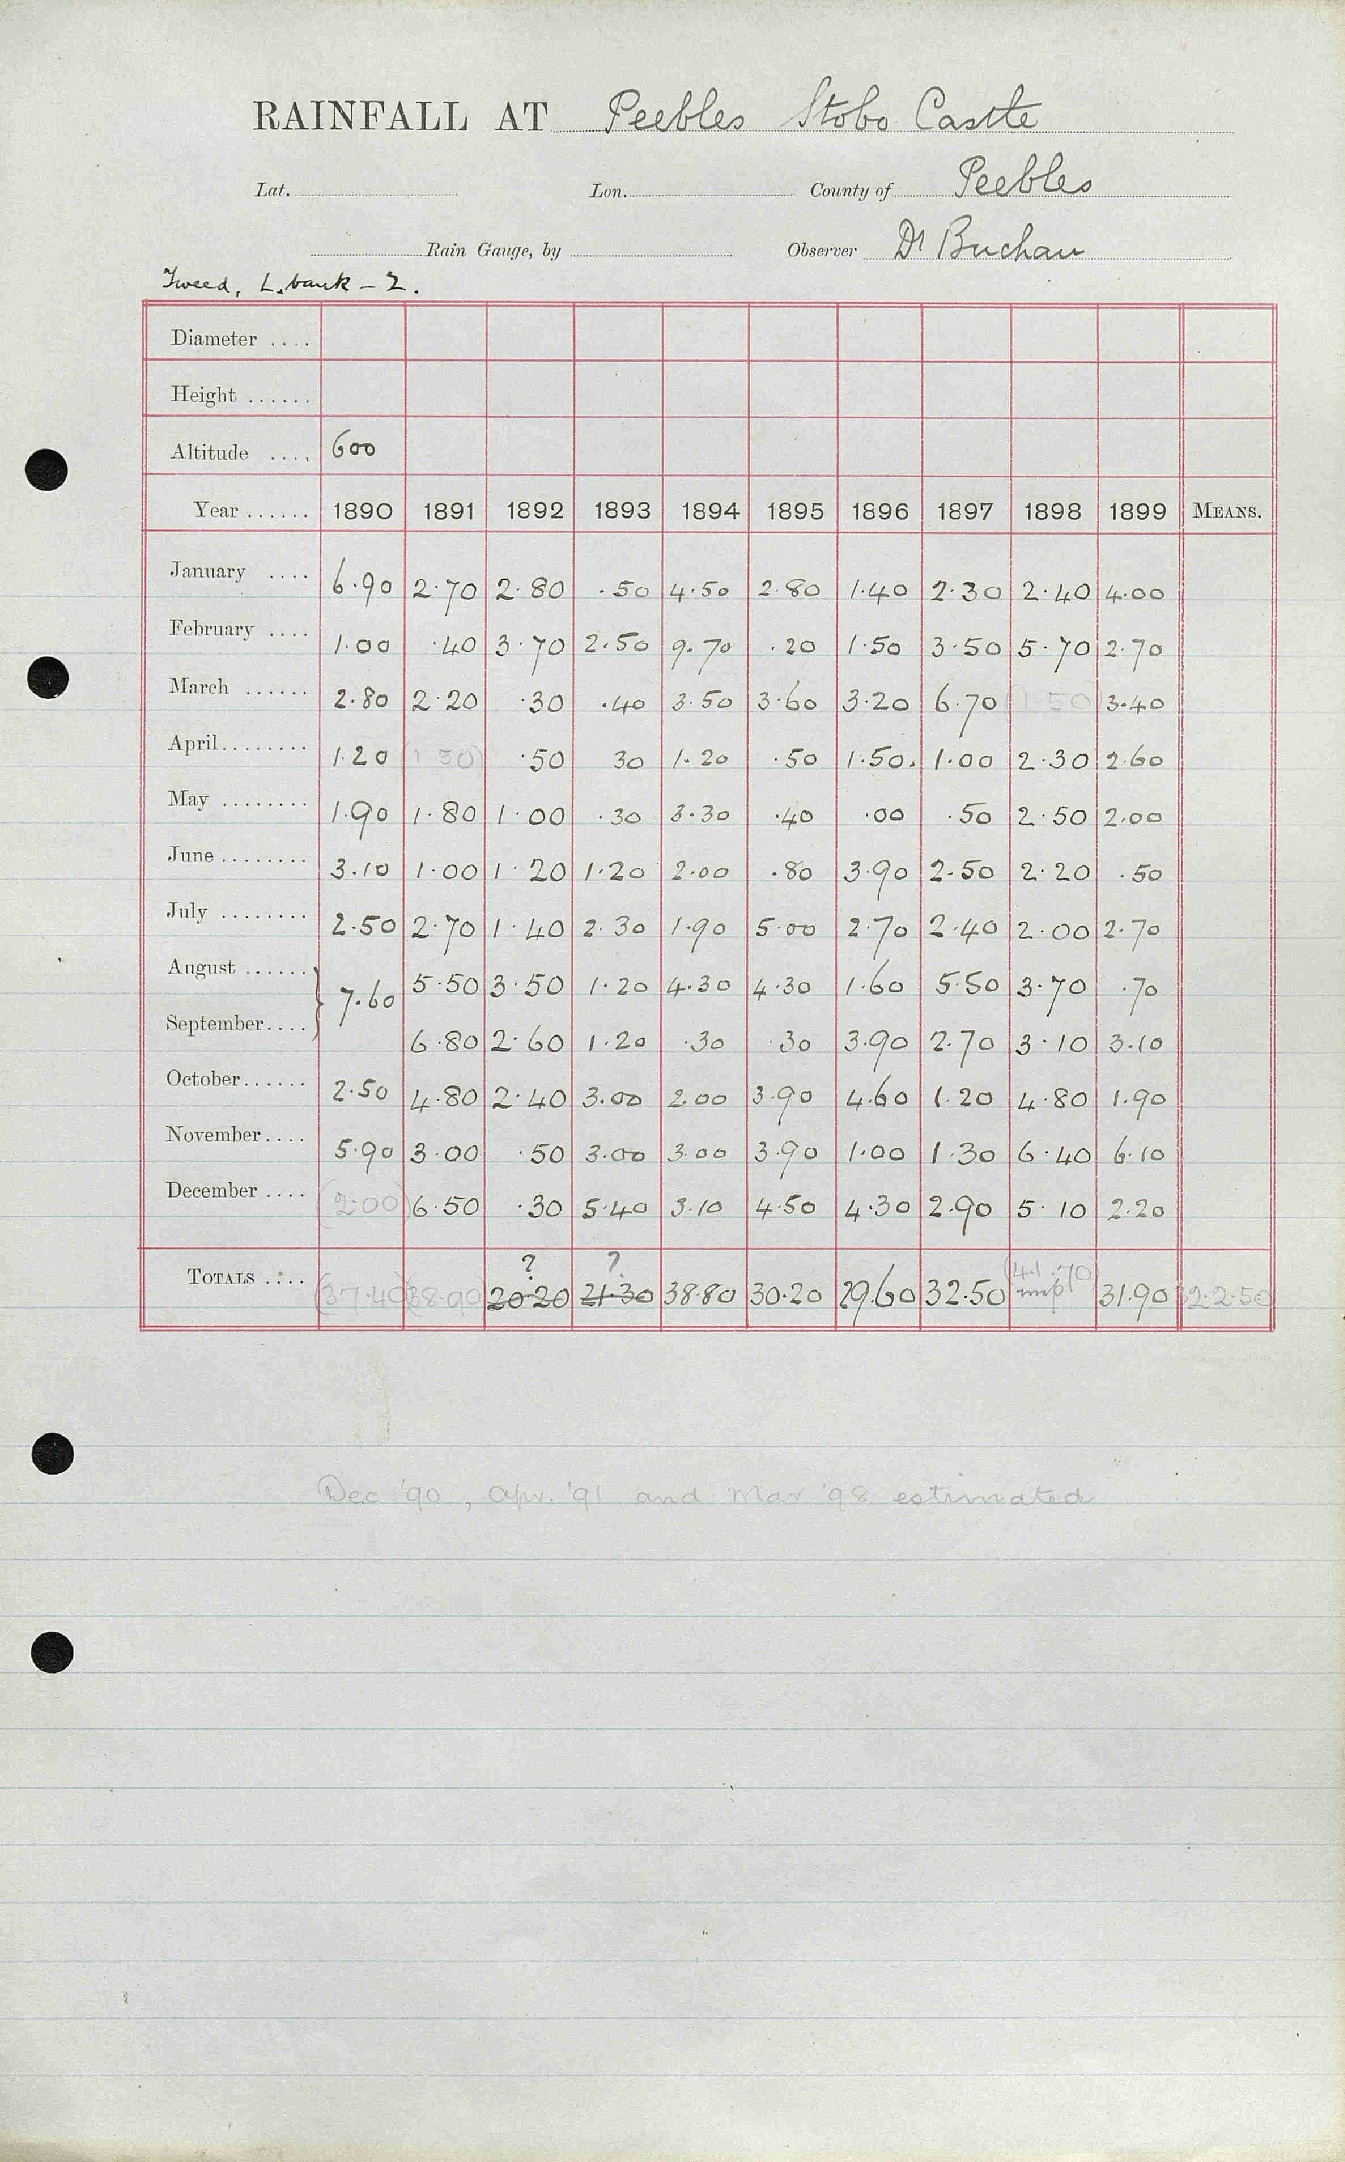 RAINFALL AT Peebles Stobo Castle
Lat. Lon. County of Peebles
Rain Gauge, by Observer Dr Buchan
Tweed, L. bank - 2.
Diameter ....
Height ......
Altitude .... 600
Year ...... 1890 1891 1892 1893 1894 1895 1896 1897 1898 1899 MEANS.
January .... 6.90 2.70 2.80 .50 4.50 2.80 1.40 2.30 2.40 4.00
February .... 1.00 .40 3.70 2.50 9.70 .20 1.50 3.50 5.70 2.70
March ...... 2.80 2.20 .30 .40 3.50 3.60 3.20 6.70 (1.50) 3.40
April........ 1.20 (1.50) .50 30 1.20 .50 1.50. 1.00 2.30 2.60
May ........ 1.90 1.80 1.00 .30 3.30 .40 .00 .50 2.50 2.00
June ........ 3.10 1.00 1.20 1.20 2.00 .80 3.90 2.50 2.20 .50
July ........ 2.50 2.70 1.40 2.30 1.90 5.00 2.70 2.40 2.00 2.70
August ...... } 7.60 5.50 3.50 1.20 4.30 4.30 1.60 5.50 3.70 .70
September.... 6.80 2.60 1.20 .30 .30 3.90 2.70 3.10 3.10
October...... 2.50 4.80 2.40 3.00 2.00 3.90 4.60 1.20 4.80 1.90
November.... 5.90 3.00 .50 3.00 3.00 3.90 1.00 1.30 6.40 6.10
December .... (2.00) 6.50 .30 5.40 3.10 4.50 4.30 2.90 5.10 2.20
? ? (41.70)
TOTALS .... (37.40) (38.90) 20.20 21.30 38.80 30.20 29.60 32.50 31.90 322.50
Dec '90, Apr. '91 and Mar '98 estimated